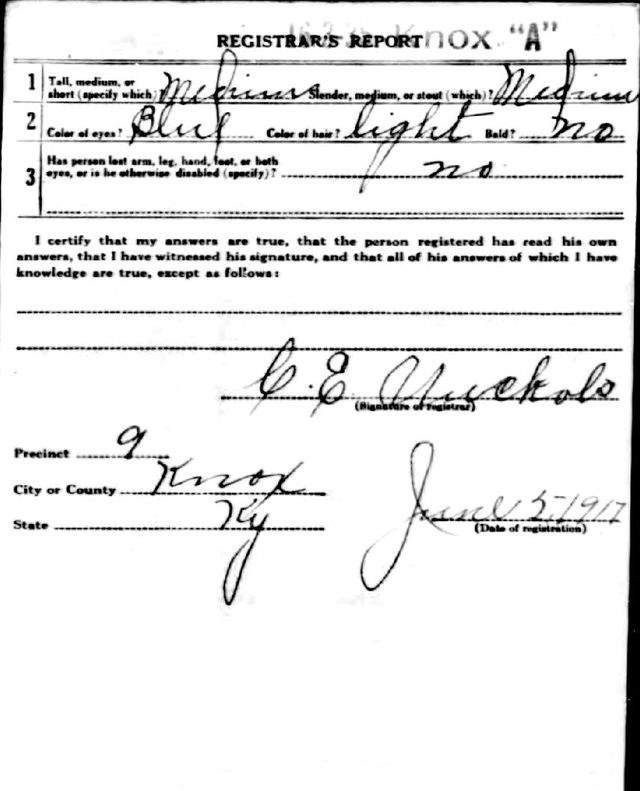 Knox "A"
REGISTRAR'S REPORT
1 Tall, medium, or short (specify which) Medium Slender, medium, or stout (which)? Medium
2 Color of eyes? Blue Color of hair? light Bald? no
3 Has person lost arm, leg, hand, foot, or both eyes, or is he otherwise disabled (specify)? no
I certify that my answers are true, that the person registered has read his own
answers, that I have witnessed his signature, and that all of his answers of which I have
knowledge are true, except as follows:
C. E. Nuckols
(Signature of registrar)
Precinct 9
City or County Knox
State Ky
June 5, 1917
(Date of registration)